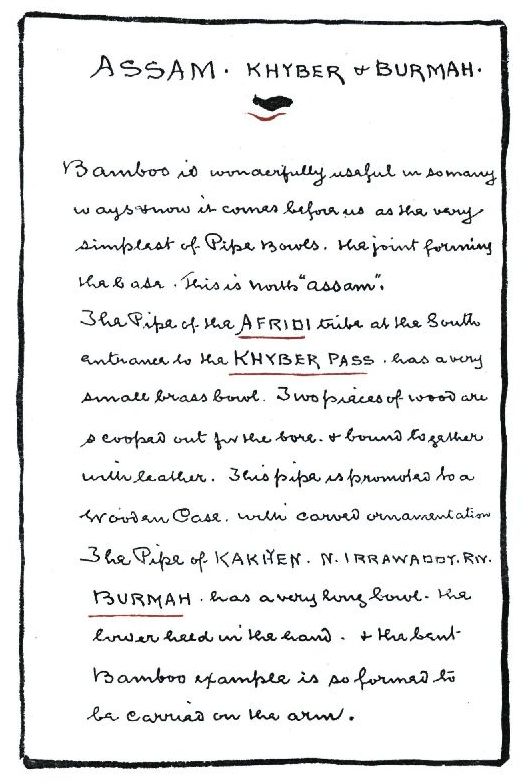 ASSAM. KHYBER & BURMAH.
Bamboo is wonderfully useful in so many
ways & now it comes before us as the very
simplest of Pipe Bowls. the joint forming
the base. This is north "assam".
The Pipe of the AFRIDI tribe at the South
entrance to the KHYBER PASS. has a very
small brass bowl. Two pieces of wood are
scooped out for the bore. & bound together
with leather. This pipe is promoted to a
Wooden Case. with carved ornamentation
The Pipe of KAKHYEN. N. IRRAWADDY. RIV.
BURMAH. has a very long bowl. the
lower held in the hand. & the bent
Bamboo example is so formed to
be carried on the arm.